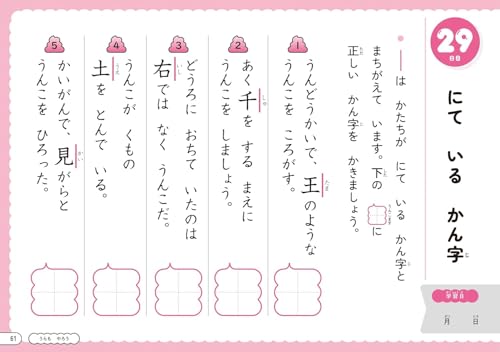 29
日目
にて いる かん字
じ
学習日
月 日
―は かたちが にて いる かん字と
まちがえて います。下の □に
正しい かん字を かきましょう。
1
うんどうかいで、王のような
たま
うんこを ころがす。
2
あく千を する まえに
しゅ
うんこを しましょう。
3
どうろに おちて いたのは
右では なく うんこだ。
いし
4
うんこが くもの
土を とんで いる。
うえ
5
かいがんで、見がらと
かい
うんこを ひろった。
61
うらも やろう